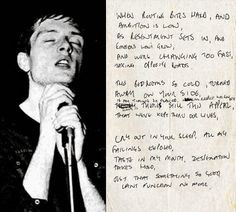 WHEN ROUTINE BITES HARD, AND
AMBITION IS LOW,
AS RESENTMENT SETS IN, AND
EMOTIONS WON'T GROW,
AND WE'RE CHANGING TOO FAST,
TAKING DIFFERENT ROADS
THIS BEDROOMS SO COLD, TURNED
AWAY ON YOUR SIDE,
THERES STILL THIS APPEAL,
THAT WE'VE KEPT THRU OUR LIVES,
CRY OUT IN YOUR SLEEP, ALL MY
FAILINGS EXPOSED,
TASTE IN MY MOUTH, DESPERATION
TAKES HOLD,
JUST THAT SOMETHING SO GOOD
CANT FUNCTION NO MORE